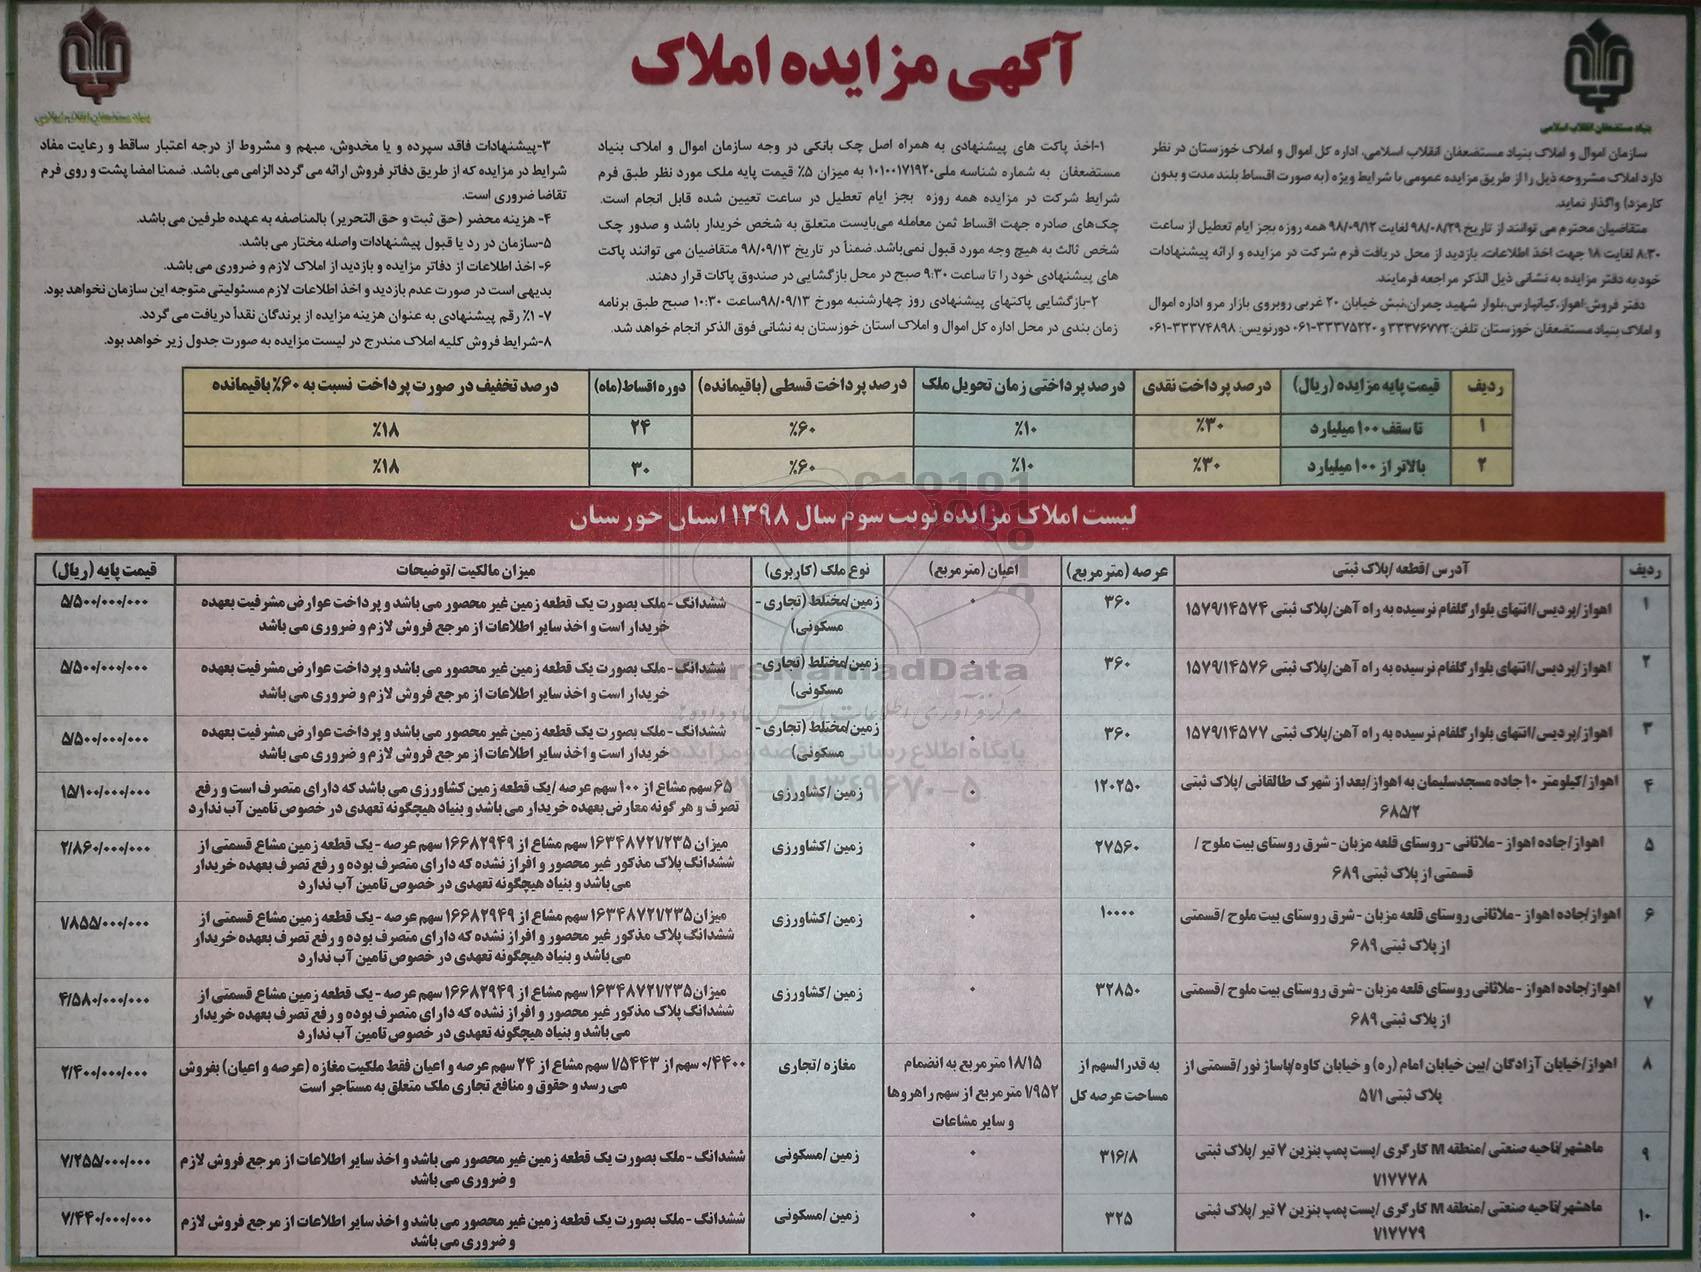 آگهی مزایده املاک
بنیاد مستضعفان انقلاب اسلامی
بنیاد مستضعفان انقلاب اسلامی
سازمان اموال و املاک بنیاد مستضعفان انقلاب اسلامی، اداره کل اموال و املاک خوزستان در نظر
دارد املاک مشروحه ذیل را از طریق مزایده عمومی با شرایط ویژه (به صورت اقساط بلند مدت و بدون
کارمزد) واگذار نماید.
متقاضیان محترم می توانند از تاریخ ۹۸/۰۸/۲۹ لغایت ۹۸/۰۹/۱۲ همه روزه بجز ایام تعطیل از ساعت
۸:۳۰ لغایت ۱۸ جهت اخذ اطلاعات، بازدید از محل دریافت فرم شرکت در مزایده و ارائه پیشنهادات
خود به دفتر مزایده به نشانی ذیل الذکر مراجعه فرمایند.
دفتر فروش:اهواز،کیانپارس،بلوار شهید چمران،نبش خیابان ۲۰ غربی روبروی بازار مرو اداره اموال
و املاک بنیاد مستضعفان خوزستان تلفن:۳۳۳۷۶۷۷۲ و ۳۳۳۷۵۲۲۰-۰۶۱ دورنویس: ۳۳۳۷۴۸۹۸-۰۶۱
۱-اخذ پاکت های پیشنهادی به همراه اصل چک بانکی در وجه سازمان اموال و املاک بنیاد
مستضعفان به شماره شناسه ملی۱۰۱۰۰۱۷۱۹۲۰ به میزان ۵٪ قیمت پایه ملک مورد نظر طبق فرم
شرایط شرکت در مزایده همه روزه بجز ایام تعطیل در ساعت تعیین شده قابل انجام است.
چک‌های صادره جهت اقساط ثمن معامله می‌بایست متعلق به شخص خریدار باشد و صدور چک
شخص ثالث به هیچ وجه مورد قبول نمی‌باشد. ضمناً در تاریخ ۹۸/۰۹/۱۳ متقاضیان می توانند پاکت
های پیشنهادی خود را تا ساعت ۹:۳۰ صبح در محل بازگشایی در صندوق پاکات قرار دهند.
۲-بازگشایی پاکتهای پیشنهادی روز چهارشنبه مورخ ۹۸/۰۹/۱۳ساعت ۱۰:۳۰ صبح طبق برنامه
زمان بندی در محل اداره کل اموال و املاک استان خوزستان به نشانی فوق الذکر انجام خواهد شد.
۳-پیشنهادات فاقد سپرده و یا مخدوش، مبهم و مشروط از درجه اعتبار ساقط و رعایت مفاد
شرایط در مزایده که از طریق دفاتر فروش ارائه می گردد الزامی می باشد. ضمنا امضا پشت و روی فرم
تقاضا ضروری است.
۴- هزینه محضر (حق ثبت و حق التحریر) بالمناصفه به عهده طرفین می باشد.
۵-سازمان در رد یا قبول پیشنهادات واصله مختار می باشد.
۶- اخذ اطلاعات از دفاتر مزایده و بازدید از املاک لازم و ضروری می باشد.
بدیهی است در صورت عدم بازدید و اخذ اطلاعات لازم مسئولیتی متوجه این سازمان نخواهد بود.
۷- ۱٪ رقم پیشنهادی به عنوان هزینه مزایده از برندگان نقداً دریافت می گردد.
۸-شرایط فروش کلیه املاک مندرج در لیست مزایده به صورت جدول زیر خواهد بود.
ردیف | قیمت پایه مزایده (ریال) | درصد پرداخت نقدی | درصد پرداختی زمان تحویل ملک | درصد پرداخت قسطی (باقیمانده) | دوره اقساط(ماه) | درصد تخفیف در صورت پرداخت نسبت به ۶۰٪باقیمانده
۱ | تا سقف ۱۰۰ میلیارد | ۳۰٪ | ۱۰٪ | ۶۰٪ | ۲۴ | ۱۸٪
۲ | بالاتر از ۱۰۰ میلیارد | ۳۰٪ | ۱۰٪ | ۶۰٪ | ۳۰ | ۱۸٪
لیست املاک مزایده نوبت سوم سال ۱۳۹۸ استان خوزستان
ردیف | آدرس /قطعه /پلاک ثبتی | عرصه (مترمربع) | اعیان (مترمربع) | نوع ملک (کاربری) | میزان مالکیت /توضیحات | قیمت پایه (ریال)
۱ | اهواز/پردیس/انتهای بلوار گلفام نرسیده به راه آهن/پلاک ثبتی ۱۵۷۹/۱۴۵۷۴ | ۳۶۰ | ۰ | زمین/مختلط (تجاری - | ششدانگ -ملک بصورت یک قطعه زمین غیر محصور می باشد و پرداخت عوارض مشرفیت بعهده | ۵/۵۰۰/۰۰۰/۰۰۰
مسکونی) | خریدار است و اخذ سایر اطلاعات از مرجع فروش لازم و ضروری می باشد
۲ | اهواز/پردیس/انتهای بلوار گلفام نرسیده به راه آهن/پلاک ثبتی ۱۵۷۹/۱۴۵۷۶ | ۳۶۰ | ۰ | زمین/مختلط (تجاری- | ششدانگ -ملک بصورت یک قطعه زمین غیر محصور می باشد و پرداخت عوارض مشرفیت بعهده | ۵/۵۰۰/۰۰۰/۰۰۰
مسکونی) | خریدار است و اخذ سایر اطلاعات از مرجع فروش لازم و ضروری می باشد
۳ | اهواز/پردیس/انتهای بلوار گلفام نرسیده به راه آهن/پلاک ثبتی ۱۵۷۹/۱۴۵۷۷ | ۳۶۰ | ۰ | زمین/مختلط (تجاری - | ششدانگ -ملک بصورت یک قطعه زمین غیر محصور می باشد و پرداخت عوارض مشرفیت بعهده | ۵/۵۰۰/۰۰۰/۰۰۰
مسکونی) | خریدار است و اخذ سایر اطلاعات از مرجع فروش لازم و ضروری می باشد
۴ | اهواز/کیلومتر ۱۰ جاده مسجدسلیمان به اهواز/بعد از شهرک طالقانی /پلاک ثبتی | ۱۲۰۲۵۰ | ۰ | زمین /کشاورزی | ۶۵ سهم مشاع از ۱۰۰ سهم عرصه /یک قطعه زمین کشاورزی می باشد که دارای متصرف است و رفع | ۱۵/۱۰۰/۰۰۰/۰۰۰
۶۸۵/۲ | تصرف و هر گونه معارض بعهده خریدار می باشد و بنیاد هیچگونه تعهدی در خصوص تامین آب ندارد
۵ | اهواز/جاده اهواز -ملاثانی -روستای قلعه مزبان -شرق روستای بیت ملوح / | ۲۷۵۶۰ | ۰ | زمین /کشاورزی | میزان ۱۶۳۴۸۷۲۱/۲۳۵ سهم مشاع از ۱۶۶۸۲۹۴۹ سهم عرصه -یک قطعه زمین مشاع قسمتی از | ۲/۸۶۰/۰۰۰/۰۰۰
قسمتی از پلاک ثبتی ۶۸۹ | ششدانگ پلاک مذکور غیر محصور و افراز نشده که دارای متصرف بوده و رفع تصرف بعهده خریدار
می باشد و بنیاد هیچگونه تعهدی در خصوص تامین آب ندارد
۶ | اهواز/جاده اهواز -ملاثانی روستای قلعه مزبان -شرق روستای بیت ملوح /قسمتی | ۱۰۰۰۰ | ۰ | زمین /کشاورزی | میزان ۱۶۳۴۸۷۲۱/۲۳۵ سهم مشاع از ۱۶۶۸۲۹۴۹ سهم عرصه -یک قطعه زمین مشاع قسمتی از | ۷/۸۵۵/۰۰۰/۰۰۰
از پلاک ثبتی ۶۸۹ | ششدانگ پلاک مذکور غیر محصور و افراز نشده که دارای متصرف بوده و رفع تصرف بعهده خریدار
می باشد و بنیاد هیچگونه تعهدی در خصوص تامین آب ندارد
۷ | اهواز/جاده اهواز -ملاثانی روستای قلعه مزبان -شرق روستای بیت ملوح /قسمتی | ۳۲۸۵۰ | ۰ | زمین /کشاورزی | میزان ۱۶۳۴۸۷۲۱/۲۳۵ سهم مشاع از ۱۶۶۸۲۹۴۹ سهم عرصه -یک قطعه زمین مشاع قسمتی از | ۴/۵۸۰/۰۰۰/۰۰۰
از پلاک ثبتی ۶۸۹ | ششدانگ پلاک مذکور غیر محصور و افراز نشده که دارای متصرف بوده و رفع تصرف بعهده خریدار
می باشد و بنیاد هیچگونه تعهدی در خصوص تامین آب ندارد
۸ | اهواز/خیابان آزادگان /بین خیابان امام (ره) و خیابان کاوه/پاساژ نور /قسمتی از | به قدر السهم از | ۱۸/۱۵ مترمربع به انضمام | مغازه /تجاری | ۰/۴۴۰۰ سهم از ۱/۵۴۴۳ سهم مشاع از ۲۴ سهم عرصه و اعیان فقط ملکیت مغازه (عرصه و اعیان) بفروش | ۲/۴۰۰/۰۰۰/۰۰۰
پلاک ثبتی ۵۱/۱ | مساحت عرصه کل | ۱/۹۵۲ مترمربع از سهم راهروها | می رسد و حقوق و منافع تجاری ملک متعلق به مستاجر است
و سایر مشاعات
۹ | ماهشهر/ناحیه صنعتی /منطقه M کارگری /پست پمپ بنزین ۷ تیر /پلاک ثبتی | ۳۱۶/۸ | ۰ | زمین /مسکونی | ششدانگ -ملک بصورت یک قطعه زمین غیر محصور می باشد و اخذ سایر اطلاعات از مرجع فروش لازم | ۷/۲۵۵/۰۰۰/۰۰۰
۱/۱۷۷۷۸ | و ضروری می باشد
۱۰ | ماهشهر/ناحیه صنعتی /منطقه M کارگری /پست پمپ بنزین ۷ تیر /پلاک ثبتی | ۳۲۵ | ۰ | زمین /مسکونی | ششدانگ -ملک بصورت یک قطعه زمین غیر محصور می باشد و اخذ سایر اطلاعات از مرجع فروش لازم | ۷/۴۴۰/۰۰۰/۰۰۰
۱/۱۷۷۷۹ | و ضروری می باشد
ParsNamadData
پایگاه اطلاع رسانی مناقصه و مزایده